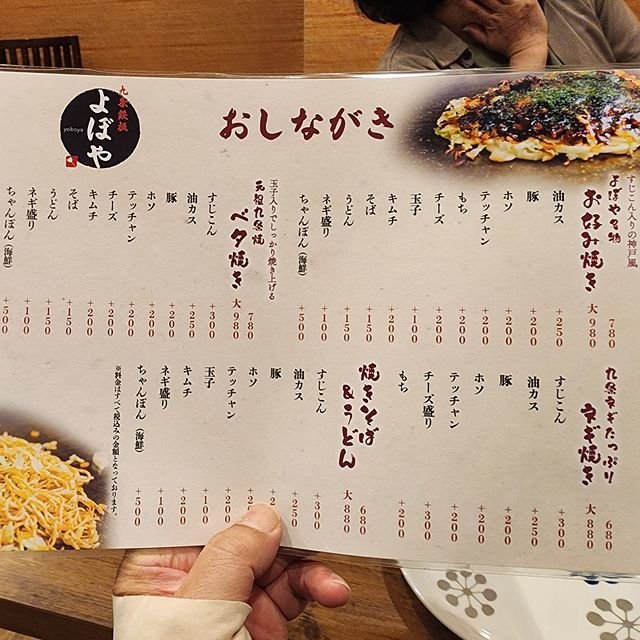 おしながき
九条鉄板
よぼや
yoboya
すじこん入りの神戸風
よぼや名物
お好み焼き
780
大 980
油カス +250
豚 +200
ホソ +200
テッチャン +200
もち +200
チーズ +200
玉子 +100
キムチ +200
そば +150
うどん +150
ネギ盛り +100
ちゃんぽん(海鮮) +500
玉子入りでしっかり焼き上げる
元祖九条焼
ベタ焼き
780
大 980
すじこん +300
油カス +250
豚 +200
ホソ +200
テッチャン +200
チーズ +200
キムチ +200
そば +150
うどん +150
ネギ盛り +100
ちゃんぽん(海鮮) +500
九条ネギたっぷり
ネギ焼き
680
大 880
すじこん +300
油カス +250
豚 +200
ホソ +200
テッチャン +200
チーズ盛り +300
もち +200
焼きそば
&うどん
680
大 880
すじこん +300
油カス +250
豚
ホソ
テッチャン +200
玉子 +100
キムチ +200
ネギ盛り +100
ちゃんぽん(海鮮) +500
※料金はすべて税込みの金額となっております。